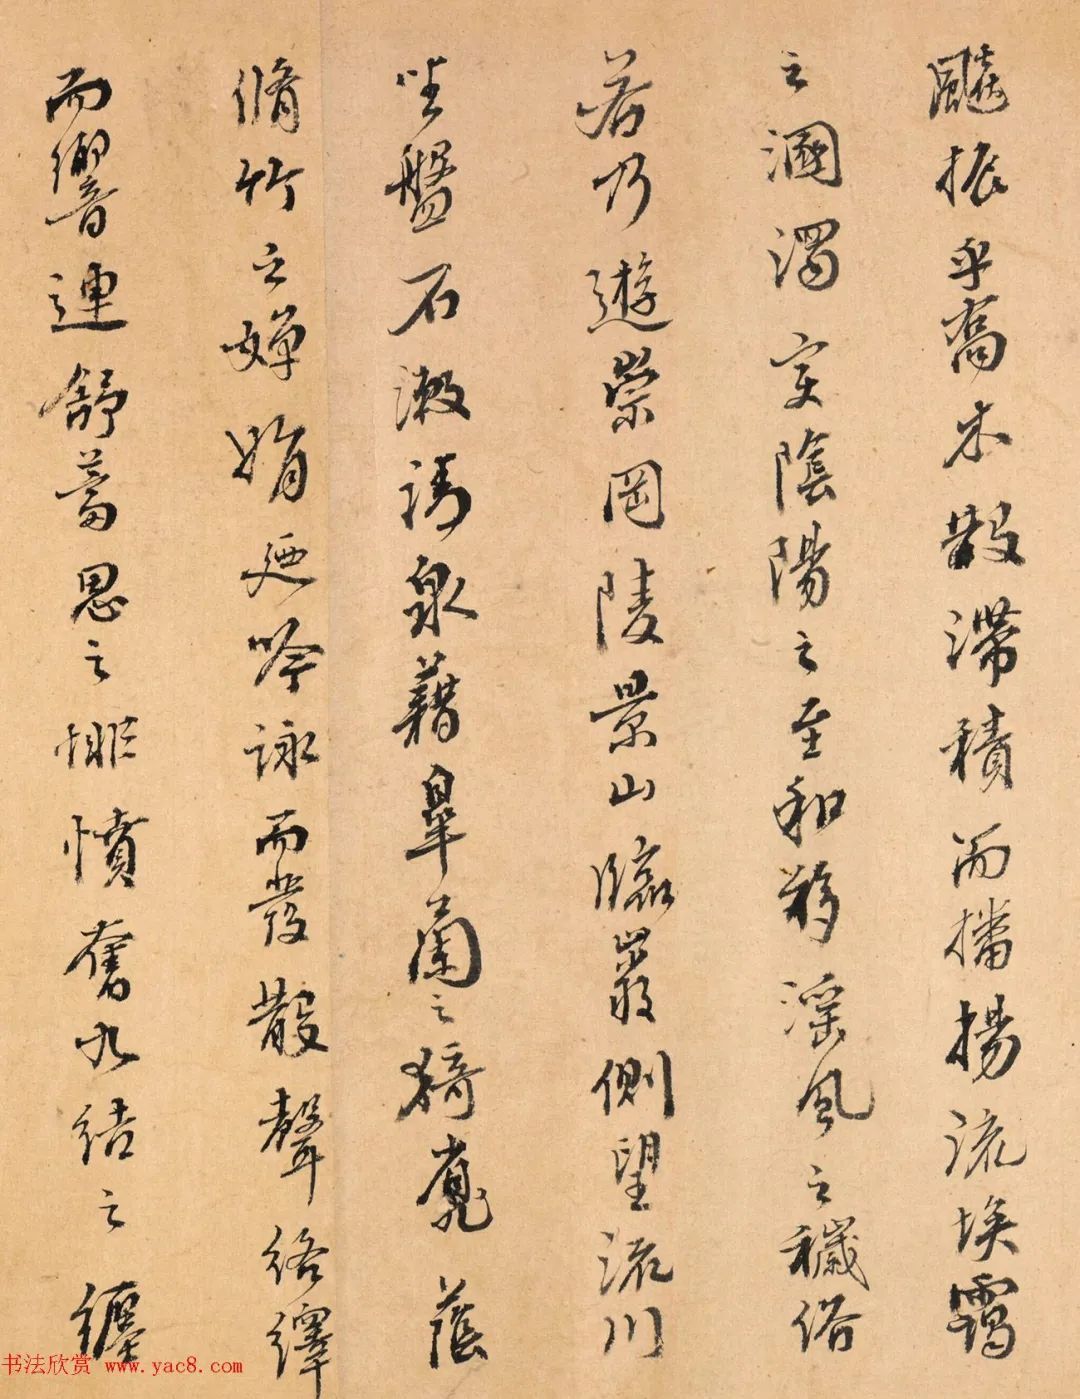 飈振乎喬木散滯積而播揚流埃靄
之溷濁变陰陽之至和移淫風之穢俗
若乃遊崇岡陵景山臨巖側望流川
坐盤石漱清泉藉皋蘭之猗靡蔭
脩竹之嬋娟廼吟詠而發散聲絡繹
而響連舒蓄思之悱憤奮久結之纏
书法欣赏 www.yac8.com